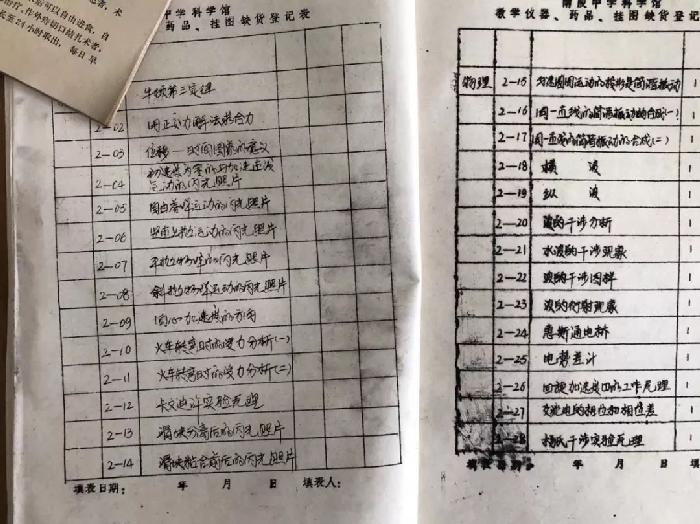 疗,作外
长至24小时取出,每日早
中学科学馆
药品、挂图缺货登记表
牛顿第三定律
2-02 用正交分解法求合力
2-03 位移—时间图象的意义
2-04 初速度为零的匀加速直线运动的闪光照片
2-05 自由落体运动的闪光照片
2-06 竖直上抛运动的闪光照片
2-07 平抛物体的闪光照片
2-08 斜抛物体运动的闪光照片
2-09 向心加速度的方向
2-10 火车转弯时的受力分析(一)
2-11 火车转弯时的受力分析(二)
2-12 卡文迪许实验原理
2-13 滑块分离后的闪光照片
2-14 滑块粘合前后的闪光照片
填表日期: 年 月 日 填表人:
南陵中学科学馆
教学仪器、药品、挂图缺货登记
物理 2-15 匀速圆周运动的投影是简谐振动
2-16 同一直线的简谐振动的合成(一)
2-17 同一直线的简谐振动的合成(二)
2-18 横波
2-19 纵波
2-20 波的干涉分析 1
2-21 水波的干涉现象 1
2-22 波的干涉图样 1
2-23 波的衍射现象 1
2-24 惠斯通电桥 1
2-25 电势差计 1
2-26 回旋加速器的工作原理 1
2-27 交流电的相位和相位差 1
2-28 杨氏干涉实验原理 1
填表日期: 年 月 日 填表人